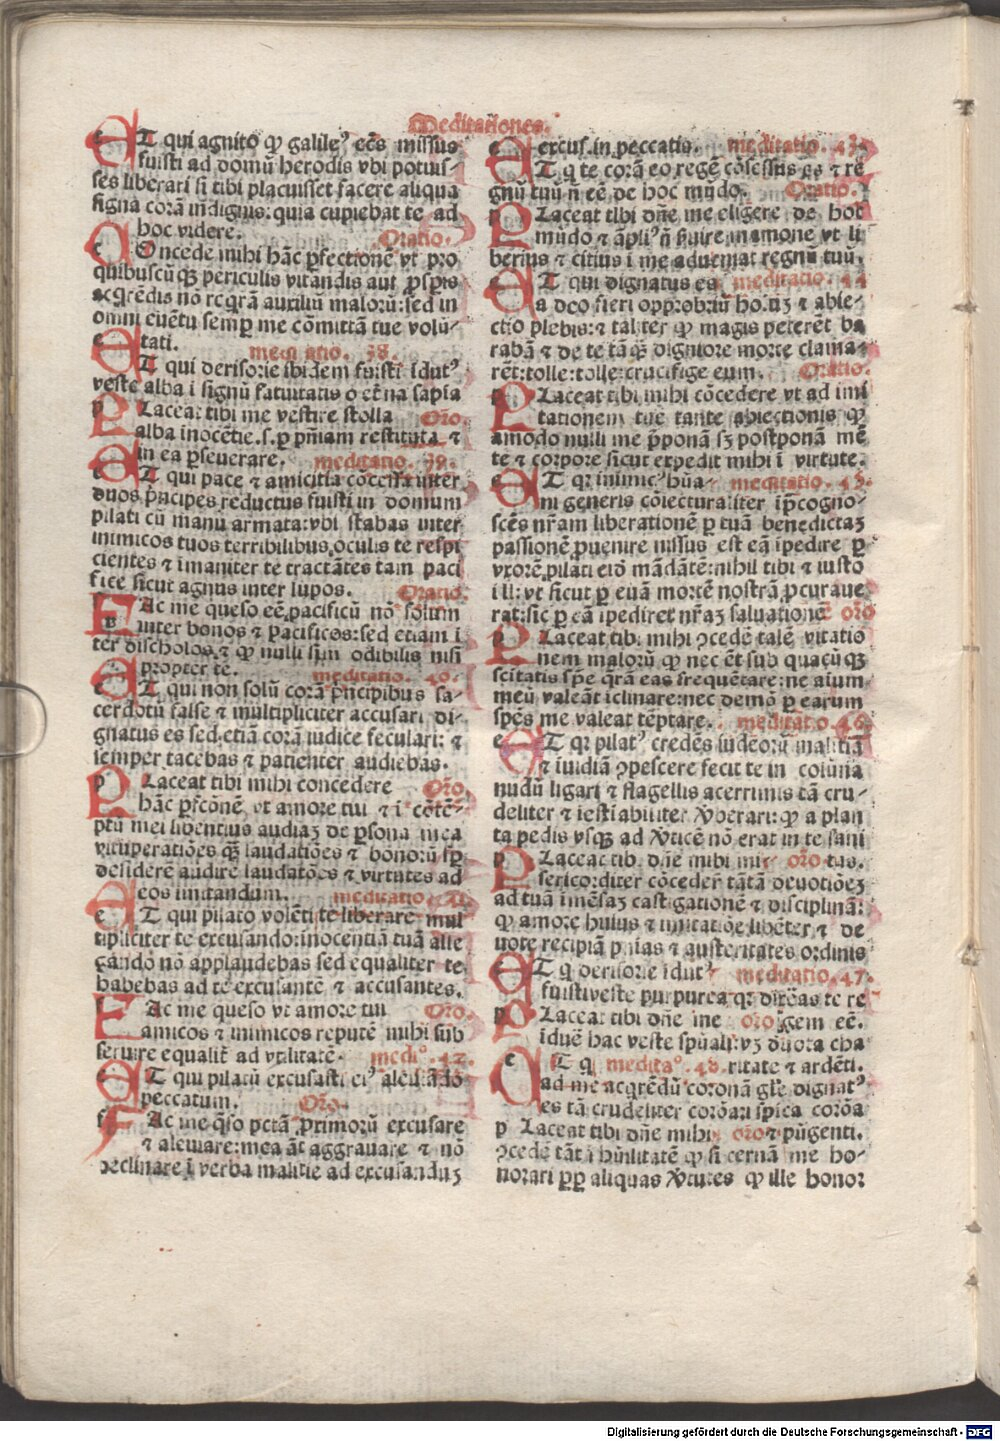 Meditationes.
ET qui agnito ꝙ galileꝰ eēs missus
fuisti ad domū herodis vbi potuis-
ses liberari si tibi placuisset facere aliqua
signa corā indignis: quia cupiebat te ad
hoc videre. Oratio.
COncede mihi hāc ꝑfectionē vt pro
quibuscūqꝫ periculis vitandis aut ꝓspis
acq̄rēdis nō reqrā auxiliū maloꝝ: sed in
omni euētu semꝑ me cōmittā tue volū-
tati. meditatio. 38.
ET qui derisorie ibidem fuisti īdutꝰ
veste alba ī signū fatuitatis o etna sapia
PLaceat tibi me vestire stolla Oro.
alba inocētie. s. ꝑ pn̄iam restituta ⁊
in ea ꝑseuerare. meditatio. 39.
ET qui pace ⁊ amicitia cōcessa inter
duos pncipes reductus fuisti in domum
pilati cū manu armata: vbi stabas inter
inimicos tuos terribilibus oculis te respi
cientes ⁊ īmaniter te tractātes tam paci
fice sicut agnus inter lupos. Oratio.
FAc me queso eē pacificū nō solum
inter bonos ⁊ pacificos: sed etiam ī
ter discholos ⁊ ꝙ nulli sim odibilis nisi
propter te. meditatio. 40.
ET qui non solū corā pncipibus sa-
cerdotū false ⁊ multipliciter accusari di-
gnatus es sed etiā corā iudice seculari: ⁊
semper tacebas ⁊ patienter audiebas.
PLaceat tibi mihi concedere Oro.
hāc pfcōnē vt amore tui ⁊ ī cōtē-
ptū mei libentius audiaꝫ de ꝑsona mea
vituperatiōes qꝫ laudatiōes ⁊ bonorū sꝑ
desiderē audire laudatōes ⁊ virtutes ad
eos imitandum. meditatio. 41.
ET qui pilato volēti te liberare mul
tipliciter te excusando: inocentiā tuā alle
gando nō applaudebas sed equaliter te
habebas ad te excusante ⁊ accusantes.
FAc me queso vt amore tui Oro.
amicos ⁊ inimicos reputē mihi sub
seruire equalit ad vtilitatē. medio. 42.
ET qui pilatū excusasti eiꝰ aleuiādo
peccatum. Oro.
FAc me qso pctā primorū excusare
⁊ aleuiare: mea āt aggrauare ⁊ nō
declinare ī verba malitie ad excusanduꝫ
excus. in peccatis. meditatio. 43.
ET q te corā eo regē cōfessus es ⁊ re
gnū tuū n̄ eē de hoc mūdo. Oratio.
PLaceat tibi dn̄e me eligere de hoc
mūdo ⁊ āpliꝰ n̄ suire mamone vt li
berius ⁊ citius ī me adueniat regnū tuū.
ET qui dignatus es meditatio. 44
a deo fieri opprobriū hoīuꝫ ⁊ abie-
ctio plebis: ⁊ taliter ꝙ magis peterēt ba
rabā ⁊ de te tāqꝫ digniore morte clama-
rēt: tolle: tolle: crucifige eum. Oratio.
PLaceat tibi mihi cōcedere vt ad imi
tationem tue tante abiectionis ꝙ
amodo nulli me p̄ponā sꝫ postponā mē
te ⁊ corpore sicut expedit mihi ī virtute.
ET qr inimicꝰ hūa- meditatio. 45.
ni generis cōiecturaliter ip̄cogno-
scēs nr̄am liberationē ꝑ tuā benedictaꝫ
passionē puenire nissus est eā īpedire ꝑ
vxorē pilati eiō mādātē: nihil tibi ⁊ iusto
illi: vt sicut ꝑ euā mortē nostrā ꝓcuraue
rat: sic ꝑ eā īpediret nr̄aꝫ saluationē oro
PLaceat tibi mihi ꝯcedē talē vitatio
nem maloꝝ ꝙ nec ēt sub quacūqꝫ
scitatis spē qrā eas frequētare: ne aium
meū valeāt īclinare: nec demō ꝑ earum
spēs me valeat tēptare. meditatio. 46.
ET qr pilatꝰ credēs iudeorū malitiā
⁊ iuidiā ꝯpescere fecit te in colūna
nudū ligari ⁊ flagellis acerrimis tā cru-
deliter ⁊ iestīabiliter v̄berari: ꝙ a plan
ta pedis vsqꝫ ad v̄ticē nō erat in te sani
PLaceat tibi dn̄e mihi mi- oro tas.
sericorditer cōceder tātā deuotiōeꝫ
ad tuā imēsaꝫ castigationē ⁊ disciplinā:
ꝙ amore huius ⁊ imitatiōe libēter ⁊ de
uote recipiā pnias ⁊ austeritates ordinis
ET q derisorie īdutꝰ meditatio. 47.
fuisti veste purpurea qr dixēas te re
PLaceat tibi dn̄e me oro gem eē.
īduē hac veste spūali: vꝫ duota cha
ET q meditao. 48. ritate ⁊ ardēti.
ad me acqrēdū coronā glē dignatꝰ
es tā crudeliter corōari spica corōa
PLaceat tibi dn̄e mihi oro ⁊ pūgenti.
ꝯcedē tātā hūilitatē ꝙ si cernā me ho-
norari ꝓꝑ aliquas v̄tutes ꝙ ille honor
Digitalisierung gefördert durch die Deutsche Forschungsgemeinschaft - DFG